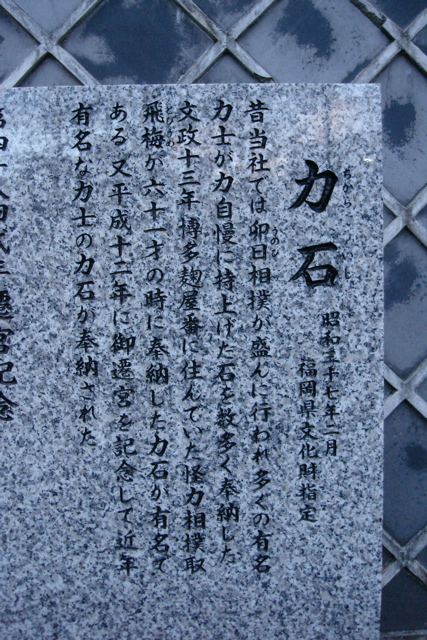 力石
ちから いし
昭和三十七年二月
福岡県文化財指定
昔当社では卯日相撲が盛んに行われ多くの有名
うのひ
力士が力自慢に持上げた石を数多く奉納した
文政十三年博多麹屋番に住んでいた怪力相撲取
飛梅が六十一才の時に奉納した力石が有名で
とびうめ
ある 又平成十二年に御遷宮を記念して近年
有名な力士の力石が奉納された
遷宮記念